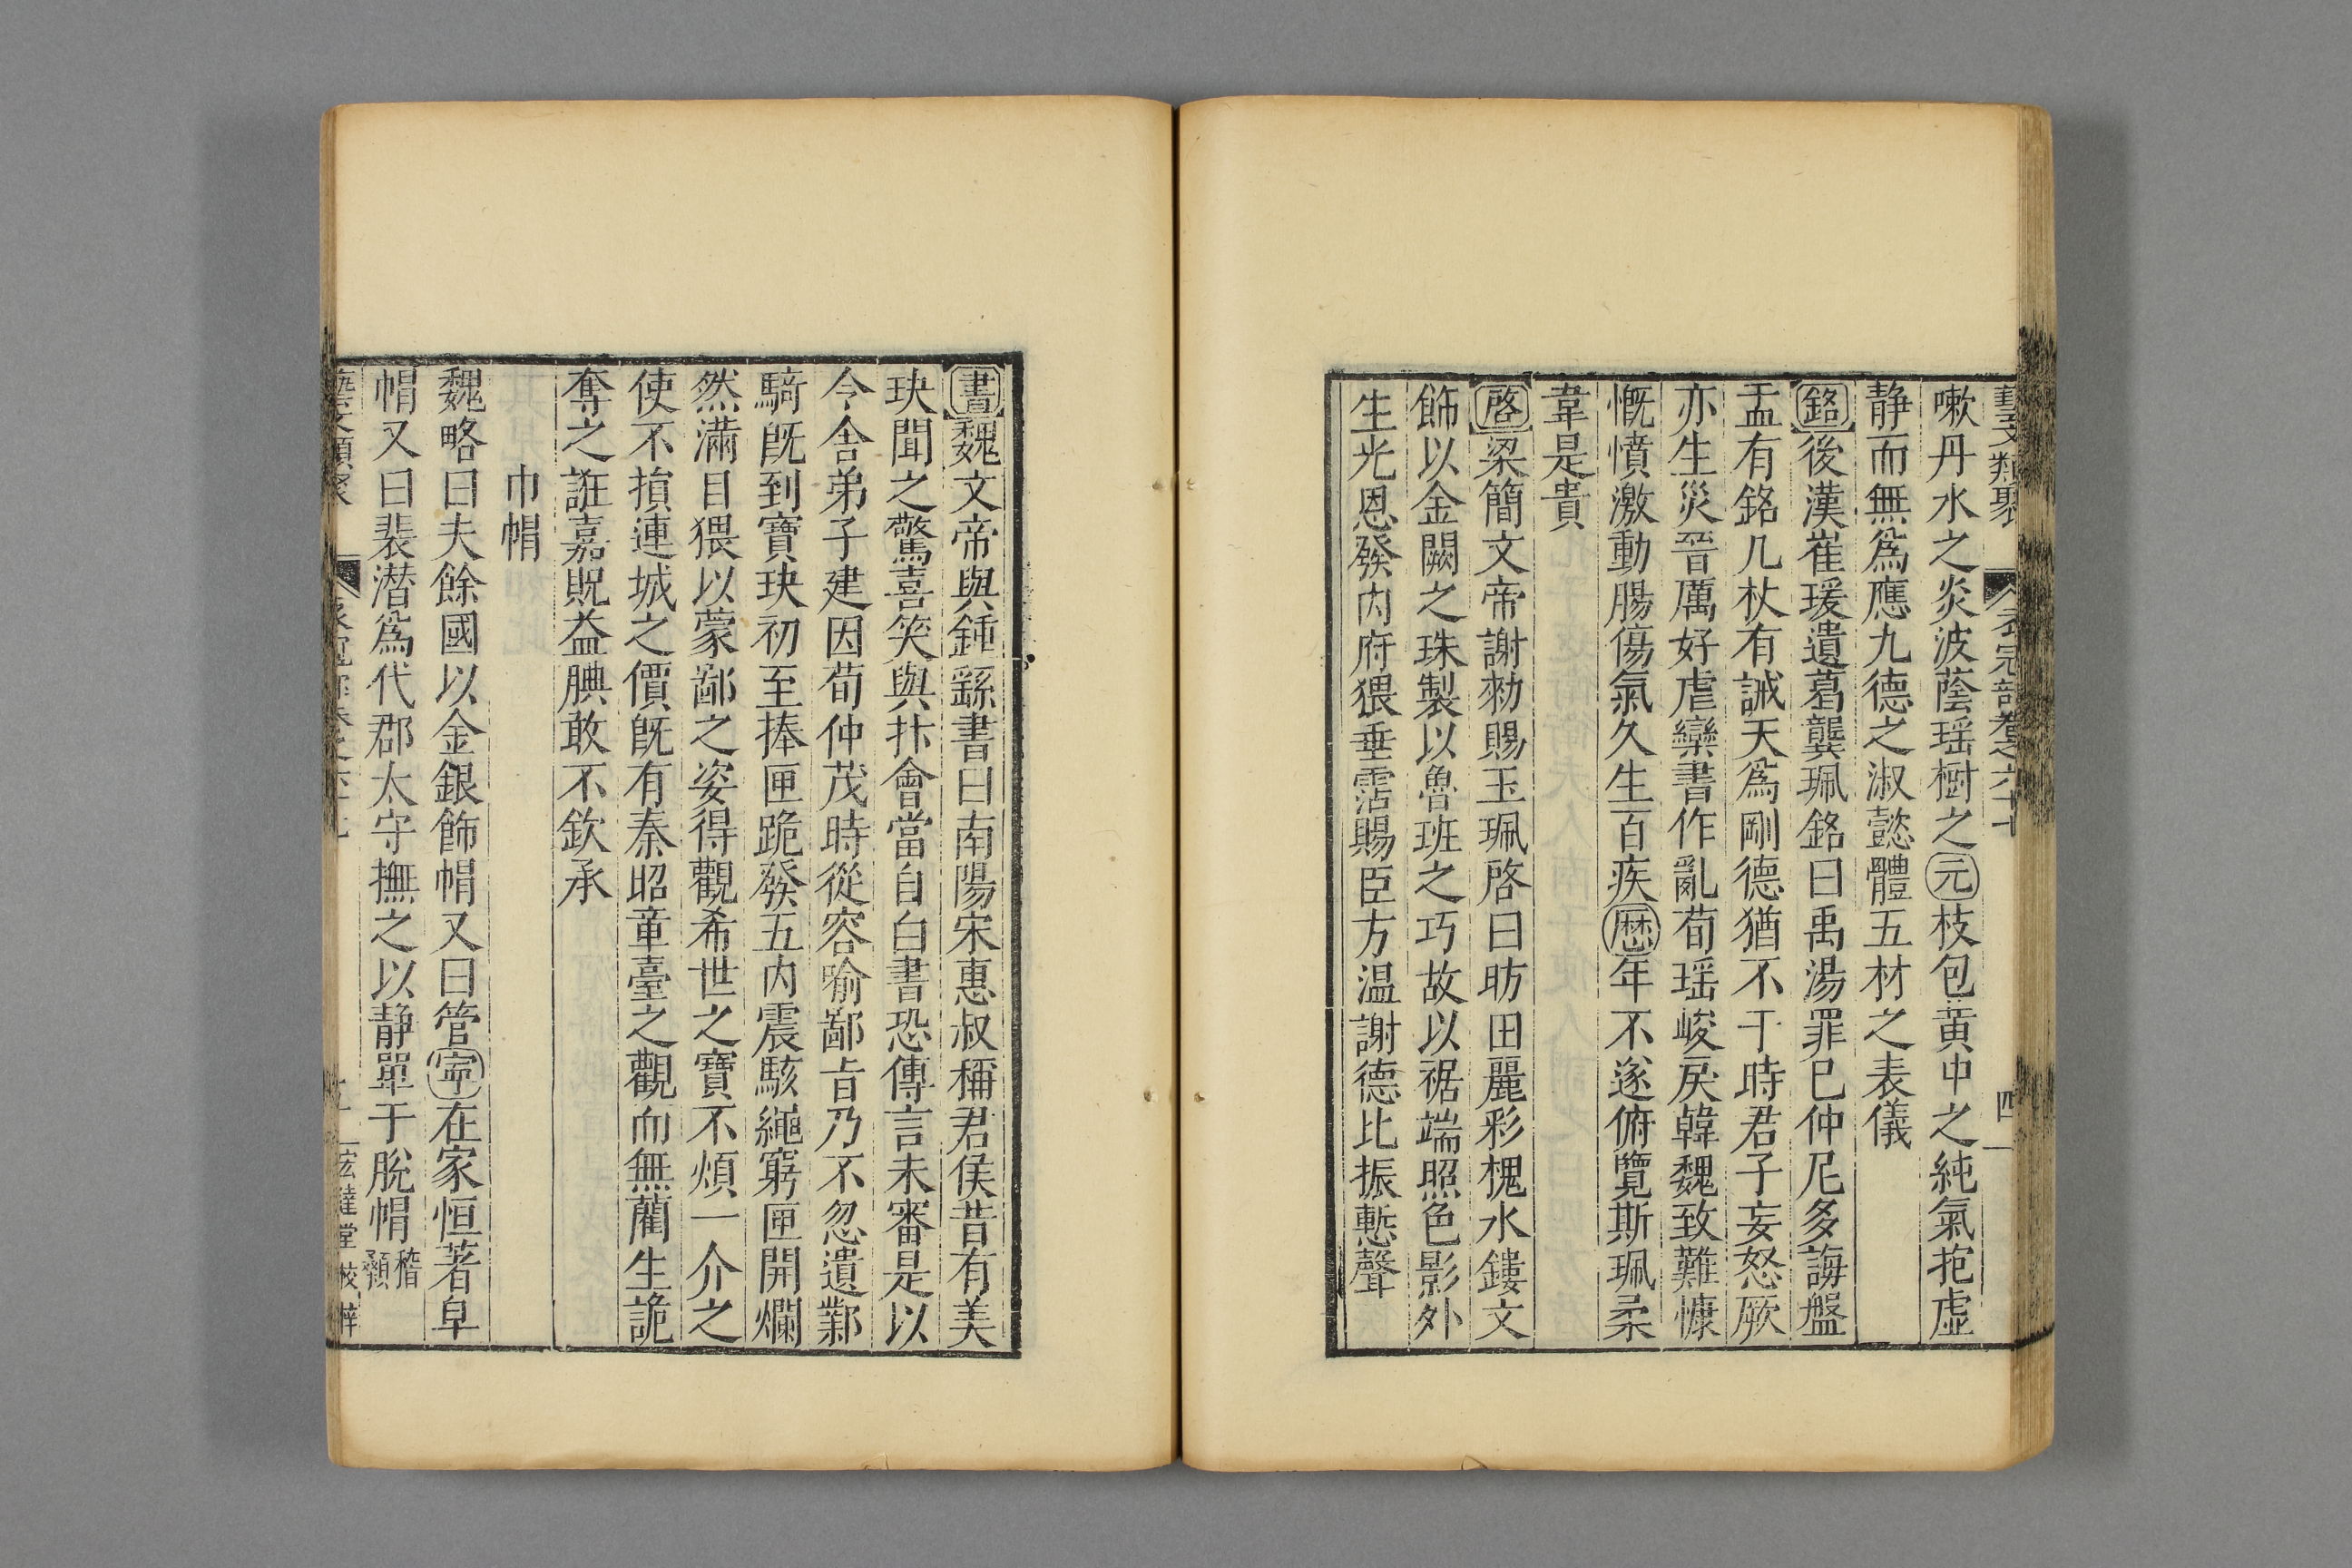 藝文類聚 衣冠部卷之六十七 四一
嗽丹水之炎波蔭瑶樹之元枝包黄中之純氣抱虛
静而無爲應九德之淑懿體五材之表儀
銘後漢崔瑗遺葛龔珮銘曰禹湯罪已仲尼多誨盤
盂有銘几杖有誡天爲剛德猶不干時君子妄怒厥
亦生災晉厲好虐欒書作亂荀瑶峻戾韓魏致難慷
慨憤激動腸傷氣久生百疾歴年不遂俯覽斯珮柔
韋是貴
啓梁簡文帝謝勑賜玉珮啓曰昉田麗彩槐水鏤文
飾以金闕之珠製以魯班之巧故以裾端照色影外
生光恩發内府猥垂霑賜臣方温謝德比振慙聲
書魏文帝與鍾繇書曰南陽宋惠叔稱君侯昔有美
玦聞之驚喜笑與抃會當自白書恐傳言未審是以
令舍弟子建因荀仲茂時從容喻鄙㫖乃不忽遺鄴
騎旣到寶玦初至捧匣跪發五内震駭繩窮匣開爛
然滿目猥以蒙鄙之姿得觀希世之寶不煩一介之
使不損連城之價旣有秦昭章臺之觀而無藺生詭
奪之誑嘉貺益腆敢不欽承
巾帽
魏略曰夫餘國以金銀飾帽又曰管寧在家恒著皁
帽又曰裴潜爲代郡太守撫之以静單于脱帽稽顙
藝文類聚
宏達堂校梓